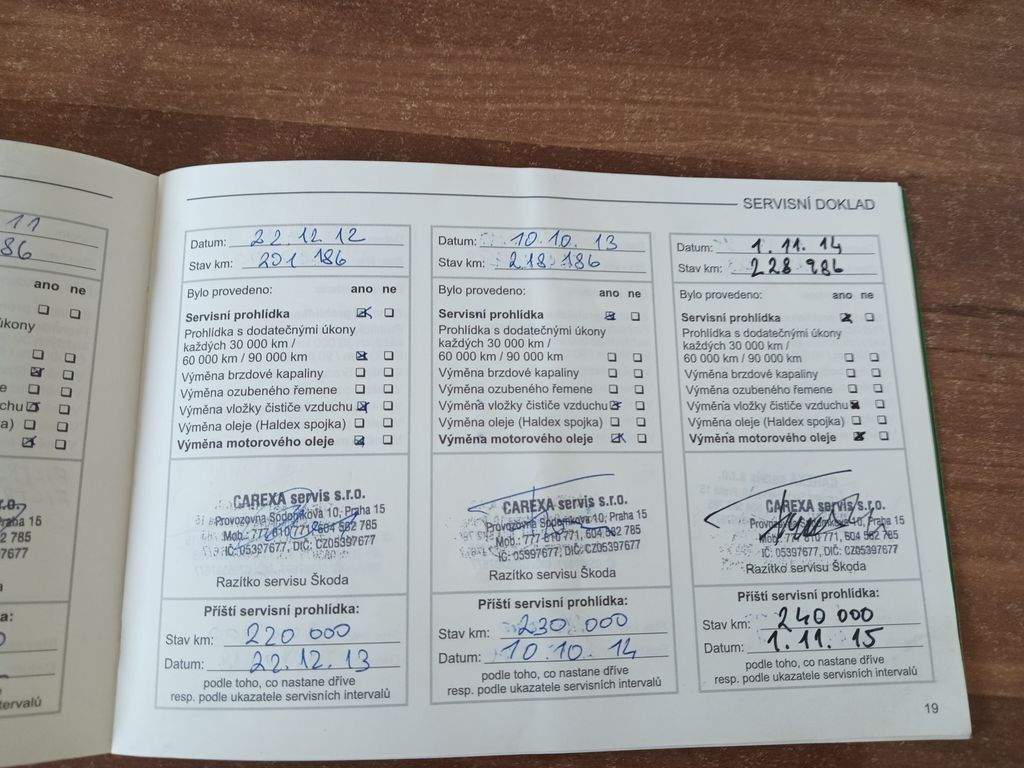 11
86
ano ne
úkony
e
duchu
a)
s.r.o.
Praha 15
785
7677
a:
ntervalů
SERVISNÍ DOKLAD
Datum: 22.12.12
Stav km: 201 186
Bylo provedeno: ano ne
Servisní prohlídka
Prohlídka s dodatečnými úkony
každých 30 000 km /
60 000 km / 90 000 km
Výměna brzdové kapaliny
Výměna ozubeného řemene
Výměna vložky čističe vzduchu
Výměna oleje (Haldex spojka)
Výměna motorového oleje
CAREXA servis s.r.o.
Provozovna Sodomkova 10, Praha 15
Mob.: 777 610 771, 604 562 785
IČ: 05397677, DIČ: CZ05397677
Razítko servisu Škoda
Příští servisní prohlídka:
Stav km: 220 000
Datum: 22.12.13
podle toho, co nastane dříve
resp. podle ukazatele servisních intervalů
Datum: 10.10.13
Stav km: 218 186
Bylo provedeno: ano ne
Servisní prohlídka
Prohlídka s dodatečnými úkony
každých 30 000 km /
60 000 km / 90 000 km
Výměna brzdové kapaliny
Výměna ozubeného řemene
Výměna vložky čističe vzduchu
Výměna oleje (Haldex spojka)
Výměna motorového oleje
CAREXA servis s.r.o.
Provozovna Sodomkova 10, Praha 15
Mob.: 777 610 771, 604 562 785
IČ: 05397677, DIČ: CZ05397677
Razítko servisu Škoda
Příští servisní prohlídka:
Stav km: 230 000
Datum: 10.10.14
podle toho, co nastane dříve
resp. podle ukazatele servisních intervalů
Datum: 1.11.14
Stav km: 228 986
Bylo provedeno: ano ne
Servisní prohlídka
Prohlídka s dodatečnými úkony
každých 30 000 km /
60 000 km / 90 000 km
Výměna brzdové kapaliny
Výměna ozubeného řemene
Výměna vložky čističe vzduchu
Výměna oleje (Haldex spojka)
Výměna motorového oleje
CAREXA servis s.r.o.
Provozovna Sodomkova 10, Praha 15
Mob.: 777 610 771, 604 562 785
IČ: 05397677, DIČ: CZ05397677
Razítko servisu Škoda
Příští servisní prohlídka:
Stav km: 240 000
Datum: 1.11.15
podle toho, co nastane dříve
resp. podle ukazatele servisních intervalů
19